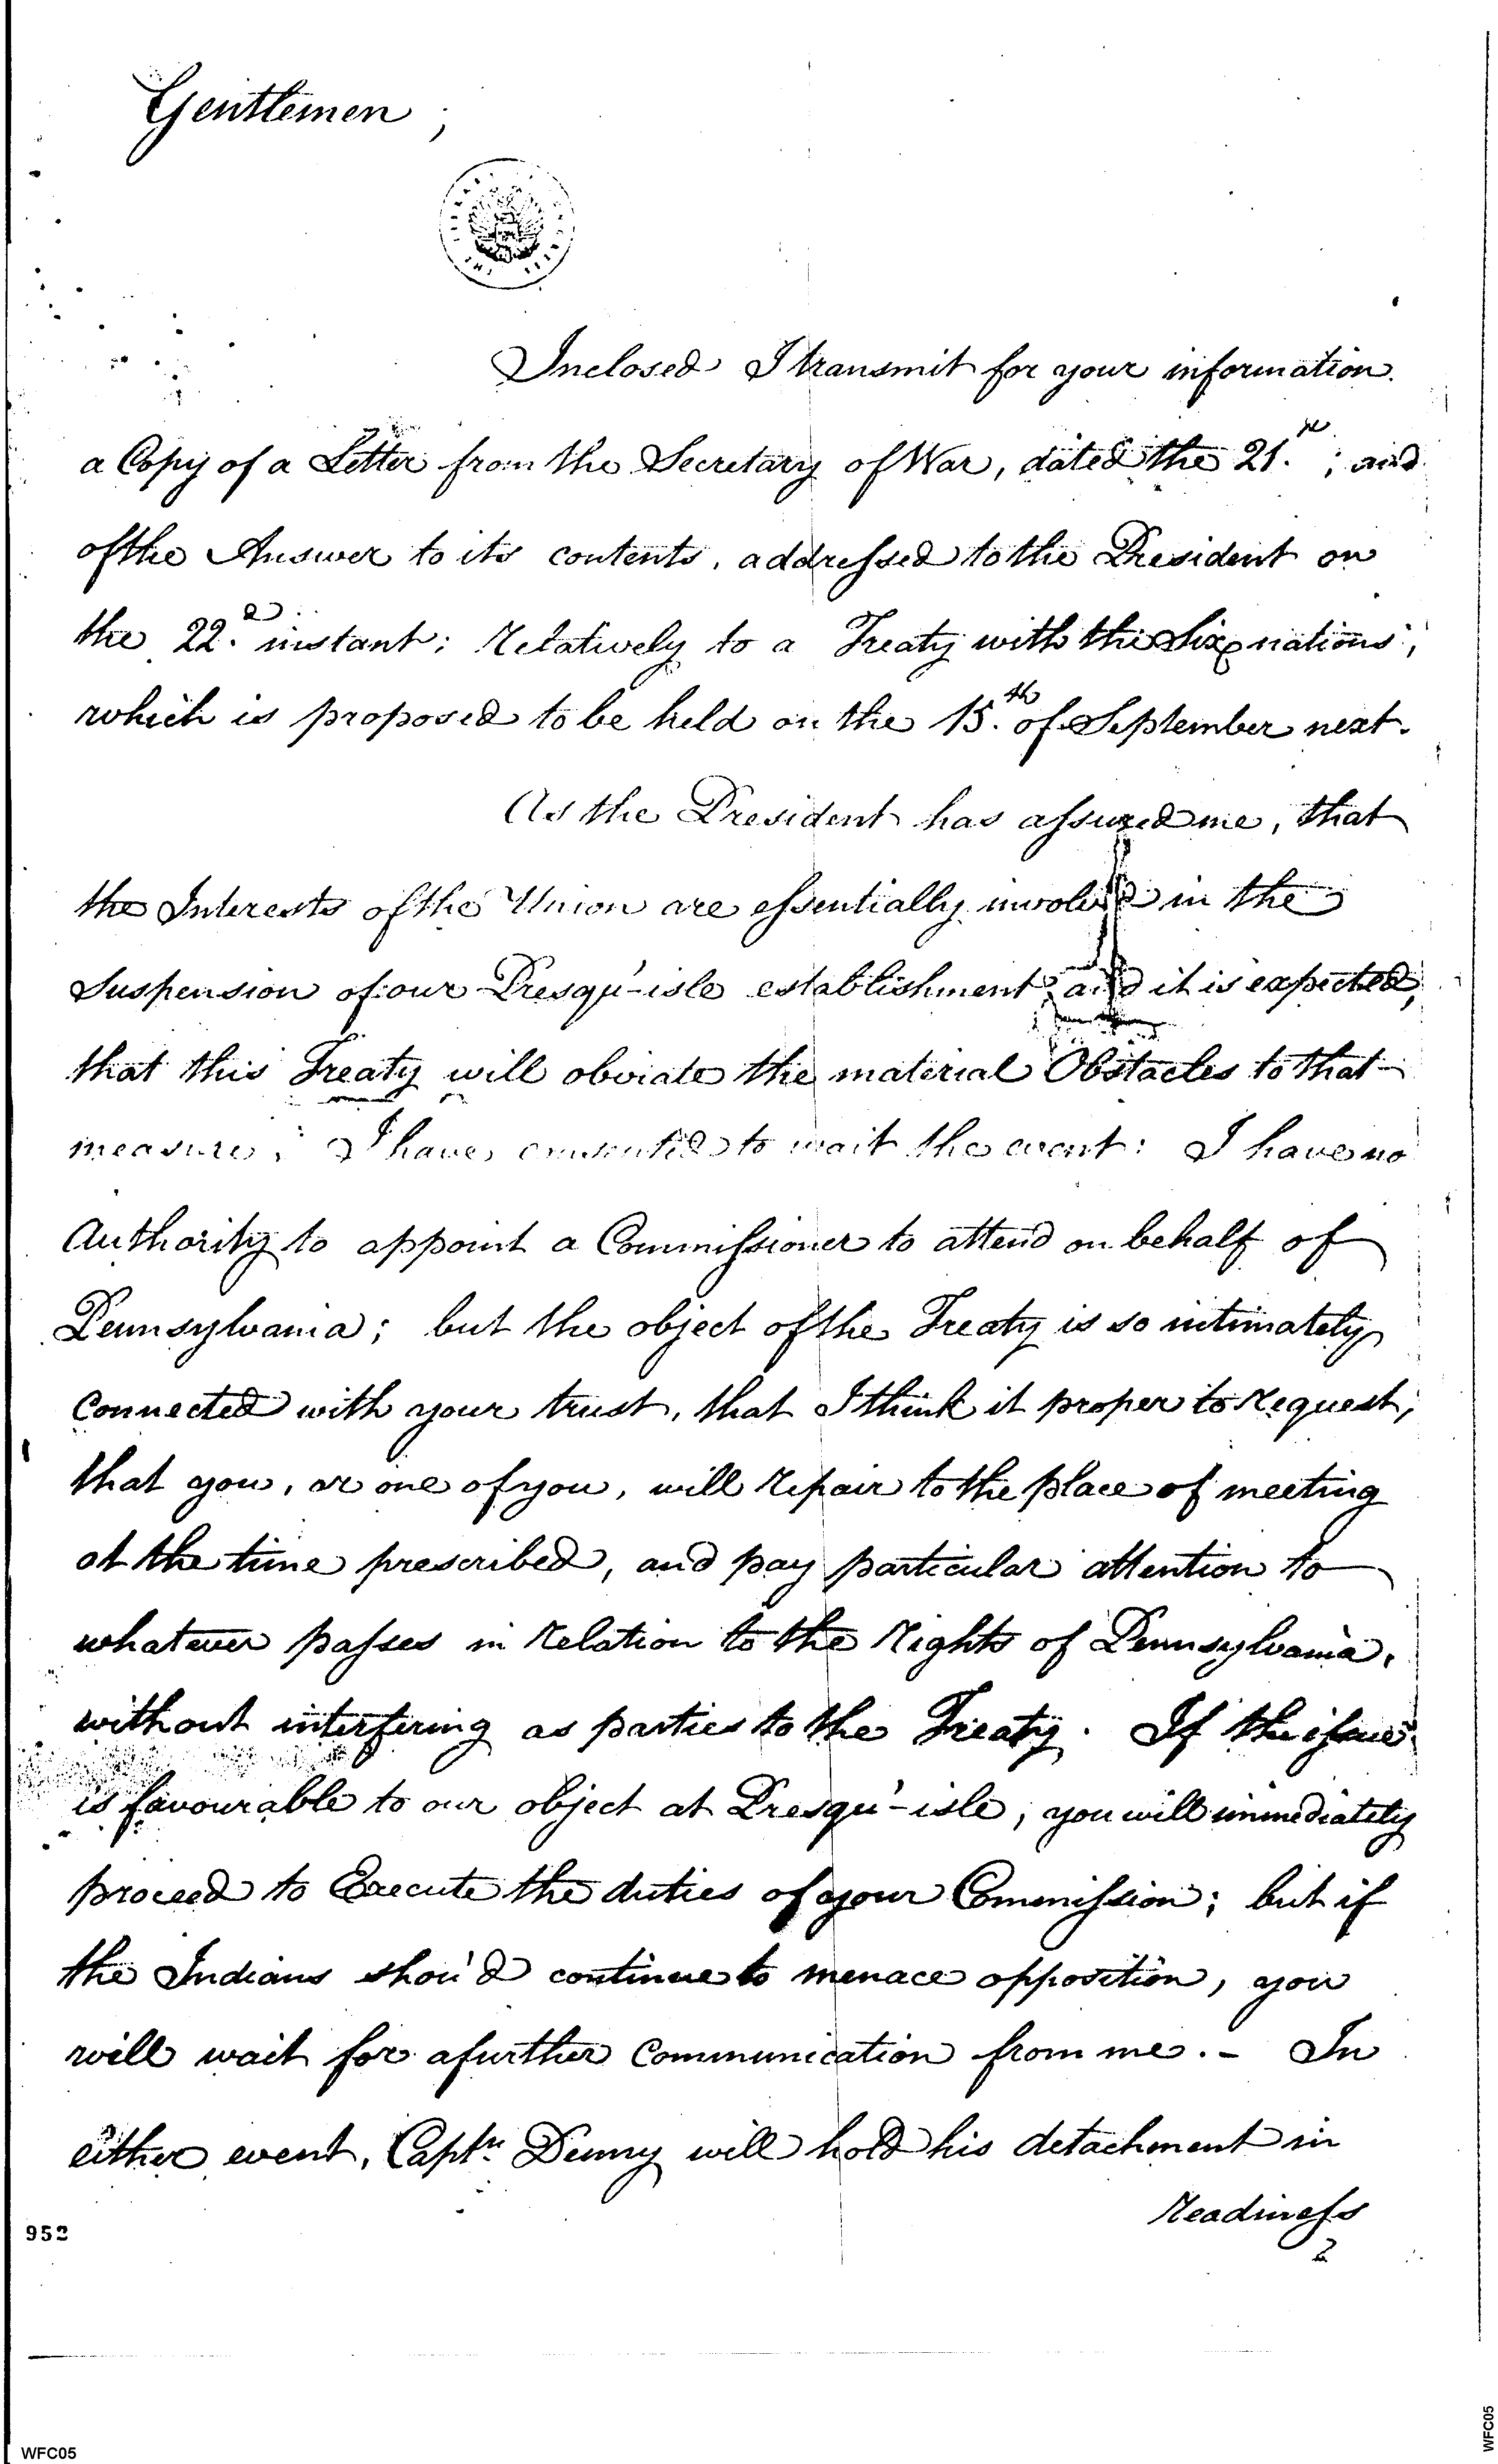 Gentlemen;
Inclosed I transmit for your information
a Copy of a Letter from the Secretary of War, dated the 21.st; and
of the Answer to its contents, addressed to the President on
the 22.d instant; relatively to a Treaty with the Six nations,
which is proposed to be held on the 15.th of September next.
As the President has assured me, that
the Interests of the Union are essentially involved in the
Suspension of our Presqu'-isle establishment, and it is expected,
that this Treaty will obviate the material Obstacles to that
measure, I have consented to wait the event: I have no
Authority to appoint a Commissioner to attend on behalf of
Pennsylvania; but the object of the Treaty is so intimately
connected with your trust, that I think it proper to request,
that you, or one of you, will repair to the place of meeting
at the time prescribed, and pay particular attention to
whatever passes in relation to the rights of Pennsylvania,
without interfering as parties to the Treaty. If the issue
is favourable to our object at Presqu'-isle, you will immediately
proceed to Execute the duties of your Commission; but if
the Indians shou'd continue to menace opposition, you
will wait for a further Communication from me. - In
either event, Captn. Denny will hold his detachment in
readiness
2
952
WFC05
WFC05